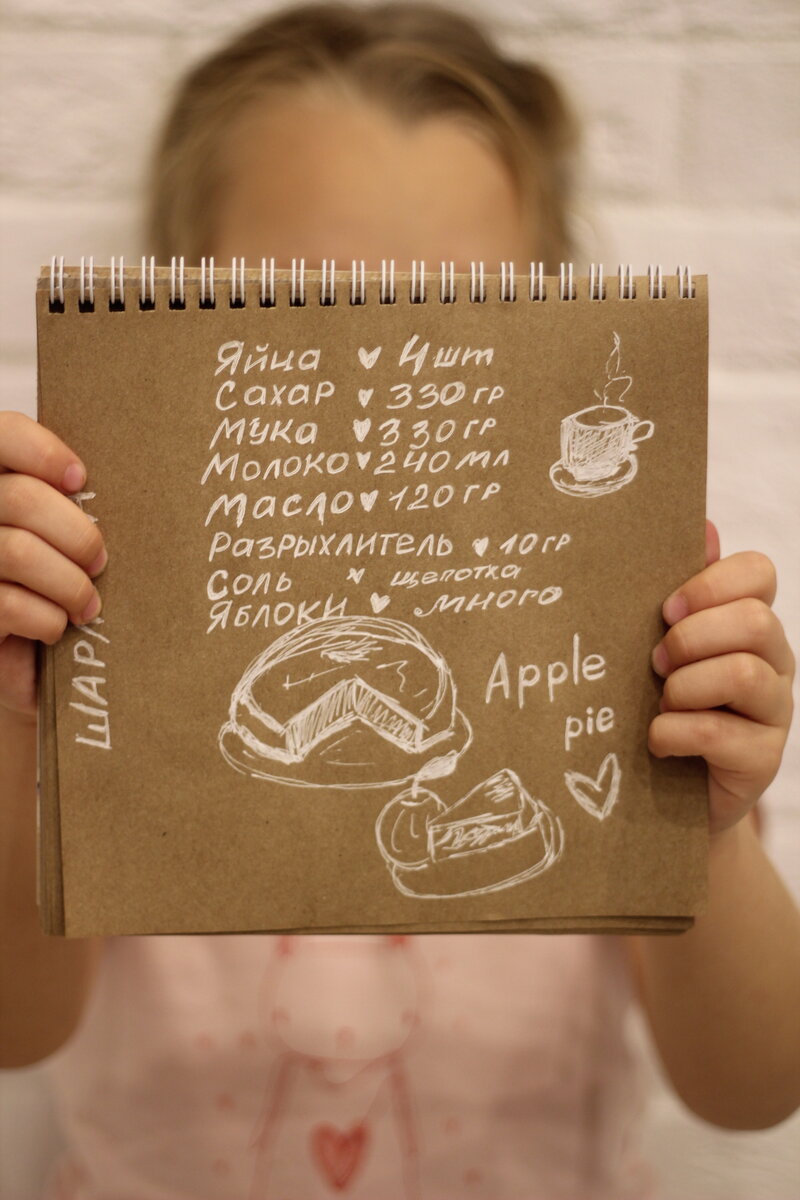 Яйца 4шт
Сахар 330гр
Мука 330гр
Молоко 240мл
Масло 120гр
Разрыхлитель 10гр
Соль щепотка
Яблоки много
Apple
pie